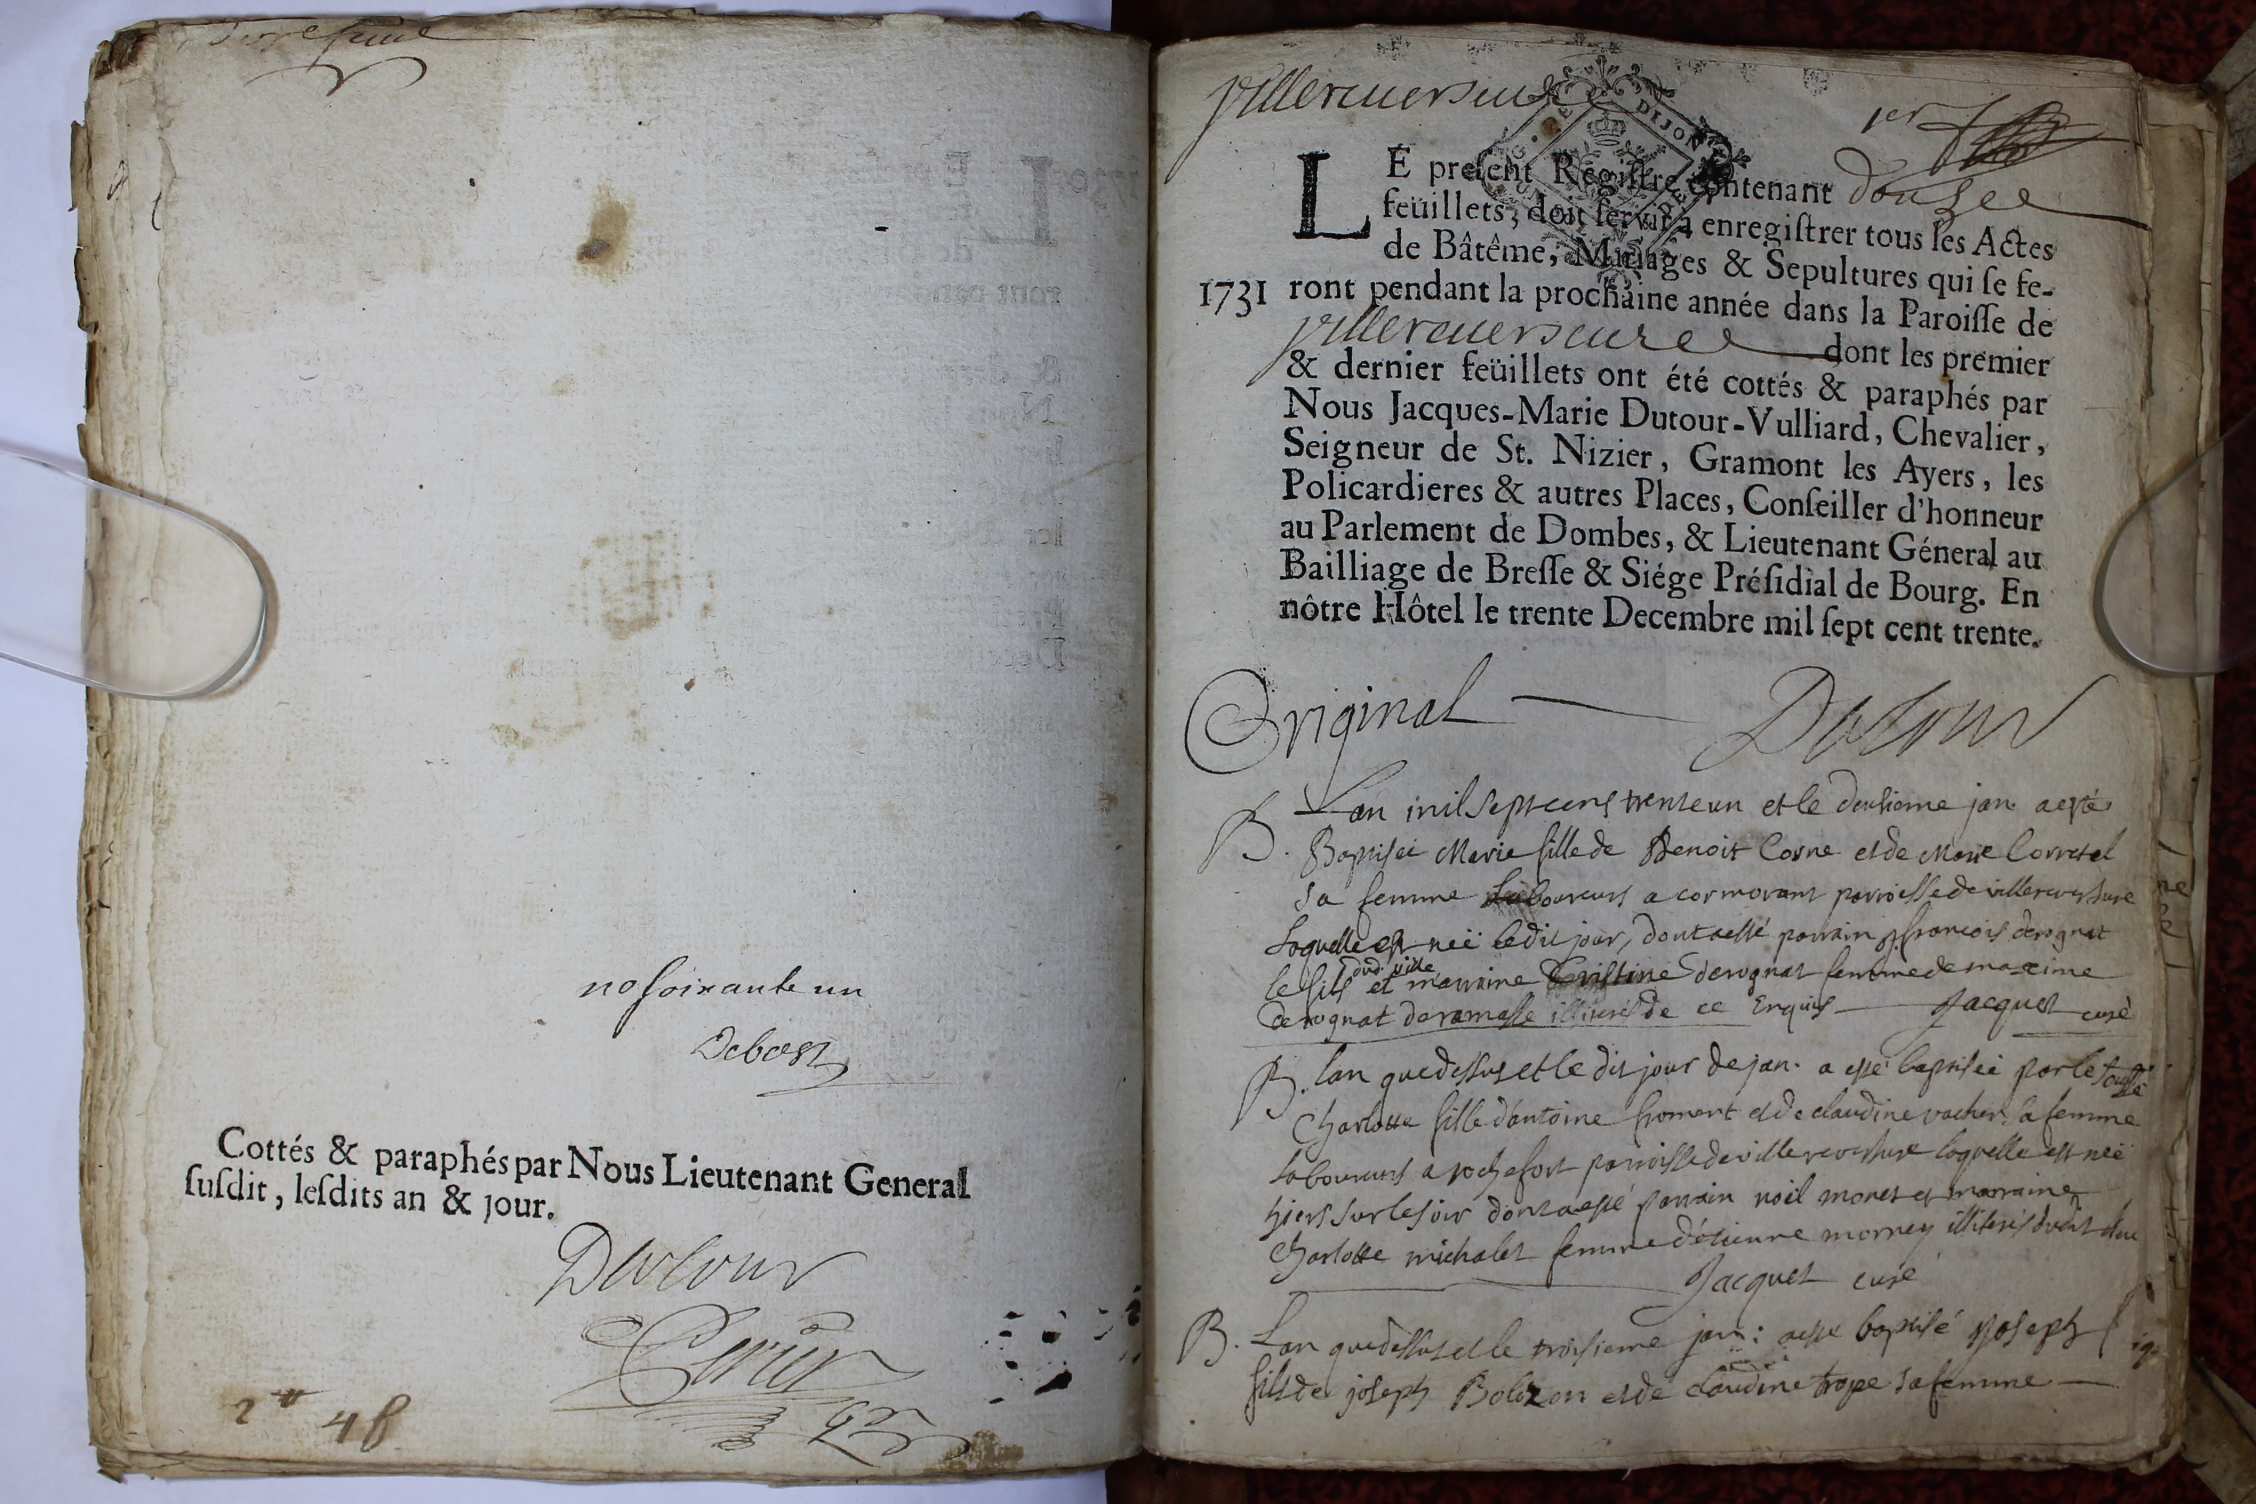 no soixante un
Debost
Cottés & paraphés par Nous Lieutenant General
susdit, lesdits an & jour.
Dutour
2 48
Villereuersure
1er
DIJON
LE present Registre contenant douze
feüillets, doit servir a enregistrer tous les Actes
de Bâtême, Mariages & Sepultures qui se fe-
1731 ront pendant la prochaine année dans la Paroisse de
Villereuersure dont les premier
& dernier feüillets ont été cottés & paraphés par
Nous Jacques-Marie Dutour-Vulliard, Chevalier,
Seigneur de St. Nizier, Gramont les Ayers, les
Policardieres & autres Places, Conseiller d'honneur
au Parlement de Dombes, & Lieutenant Géneral au
Bailliage de Bresse & Siége Présidial de Bourg. En
nôtre Hôtel le trente Decembre mil sept cent trente.
Original Dutour
B. Lan mil sept cens trente un et le deusieme jan. a esté
Baptiseé Marie fille de Benoit Corne et de Marie Corretel
sa femme Laboureurs a cormorant parroisse de villereversure
laquelle est neé le dit jour, dont a esté parrain françois derognat
le fils dud. ville et marraine Cristine derognat femme de maxime
derognat de ramasse illiterés de ce Enquis Jacquet curé
B. lan que dessus et le dit jour de jan. a esté baptiseé par le soussé
Charlotte fille d'antoine froment et de claudine vacher sa femme
laboureurs a rochefort parroisse de villereversure laquelle est neé
hiers sur le soir dont a esté parrain noil monet et marraine
Charlotte michalet femme d'étienne morney illiterés
Jacquet curé
B. Lan que dessus et le troisieme jan: a esté baptisé Joseph
fils de joseph Bolozon et de claudine trope sa femme